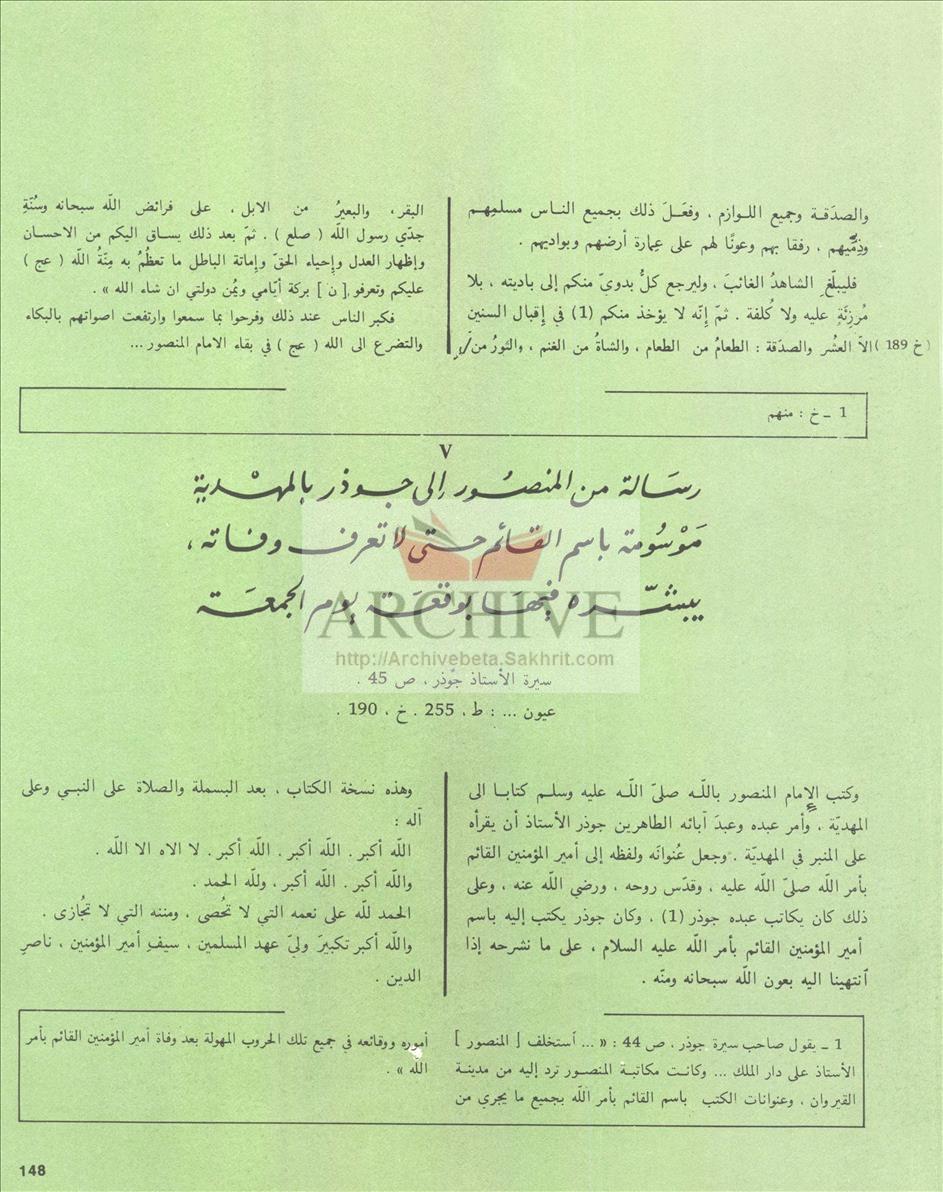 والصدَقـة وجميع اللـوازم ، وفعَـلَ ذلك بجميع النـاس مسلمِـهـم
وذِمِّيّهم ، رفقا بهم وعونًا لهم على عِمارة أرضهم وبواديهم .
فليبلّغِ الشاهدُ الغائبَ ، وليرجع كلُّ بدويّ منكم إلى باديته ، بلا
مُرزِئَةٍ عليه ولا كُلفة . ثمّ إنّه لا يؤخذ منكم (1) في إقبال السنين
( خ 189 ) الاّ العشُر والصدَقة : الطعامُ من الطعام ، والشاةُ من الغنم ، والثورُ من
البقر ، والبعيرُ من الابل ، على فرائض اللّه سبحانه وسُنّةِ
جدّي رسول اللّه ( صلع ) . ثمّ بعد ذلك يساق اليكم من الاحسان
وإظهار العدل وإحياء الحقّ وإماتة الباطل ما تعظُمُ به مِنّةُ اللّه ( عج )
عليكم وتعرفو [ ن ] بركة أيّامي ويُمن دولتي ان شاء الله » .
فكبر الناس عند ذلك وفرحوا بما سمعوا وارتفعت اصواتهم بالبكاء
والتضرع الى الله ( عج ) في بقاء الامام المنصور ...
1 ـ خ : منهم
٧
رسَالة من المنصُور إلى جوذر بالمهْدية
مَوْسُومة باسم القائم حتى لا تعرف وفاته ،
يبشّره فيها بوقعَة يوم الجمعَة
ARCHIVE
http://Archivebeta.Sakhrit.com
سيرة الأستاذ جوذر ، ص 45 .
عيون ... : ط ، 255 . خ ، 190 .
وكتب الإمام المنصور باللّه صلىّ اللّه عليه وسلم كتابا الى
المهديّة ، وأمر عبده وعبدَ آبائه الطاهرين جوذر الأستاذ أن يقرأه
على المنبر في المهديّة . وجعل عُنوانَه ولفظه إلى أمير المؤمنين القائم
بأمر اللّه صلىّ اللّه عليه ، وقدّس روحه ، ورضي اللّه عنه ، وعلى
ذلك كان يكاتب عبده جوذر (1) ، وكان جوذر يكتب إليه باسم
أمير المؤمنين القائم بأمر اللّه عليه السلام ، على ما نشرحه إذا
أنتهينا اليه بعون اللّه سبحانه ومنّه .
وهذه نسخة الكتاب ، بعد البسملة والصلاة على النبي وعلى
آله :
اللّه أكبر . اللّه أكبر . اللّه أكبر . لا الاه الا اللّه .
واللّه أكبر . اللّه أكبر ، وللّه الحمد .
الحمد للّه على نعمه التي لا تحُصى ، ومننه التي لا تجُازى .
واللّه أكبر تكبيرَ وليّ عهد المسلمين ، سيفِ أمير المؤمنين ، ناصرِ
الدين .
1 ـ يقول صاحب سيرة جوذر ، ص 44 : « ... أستخلف [ المنصور ]
الأستاذ على دار الملك ... وكانت مكاتبة المنصور ترد إليه من مدينة
القيروان ، وعنوانات الكتب باسم القائم بأمر اللّه بجميع ما يجري من
أموره ووقائعه في جميع تلك الحروب المهولة بعد وفاة أمير المؤمنين القائم بأمر
اللّه » .
148